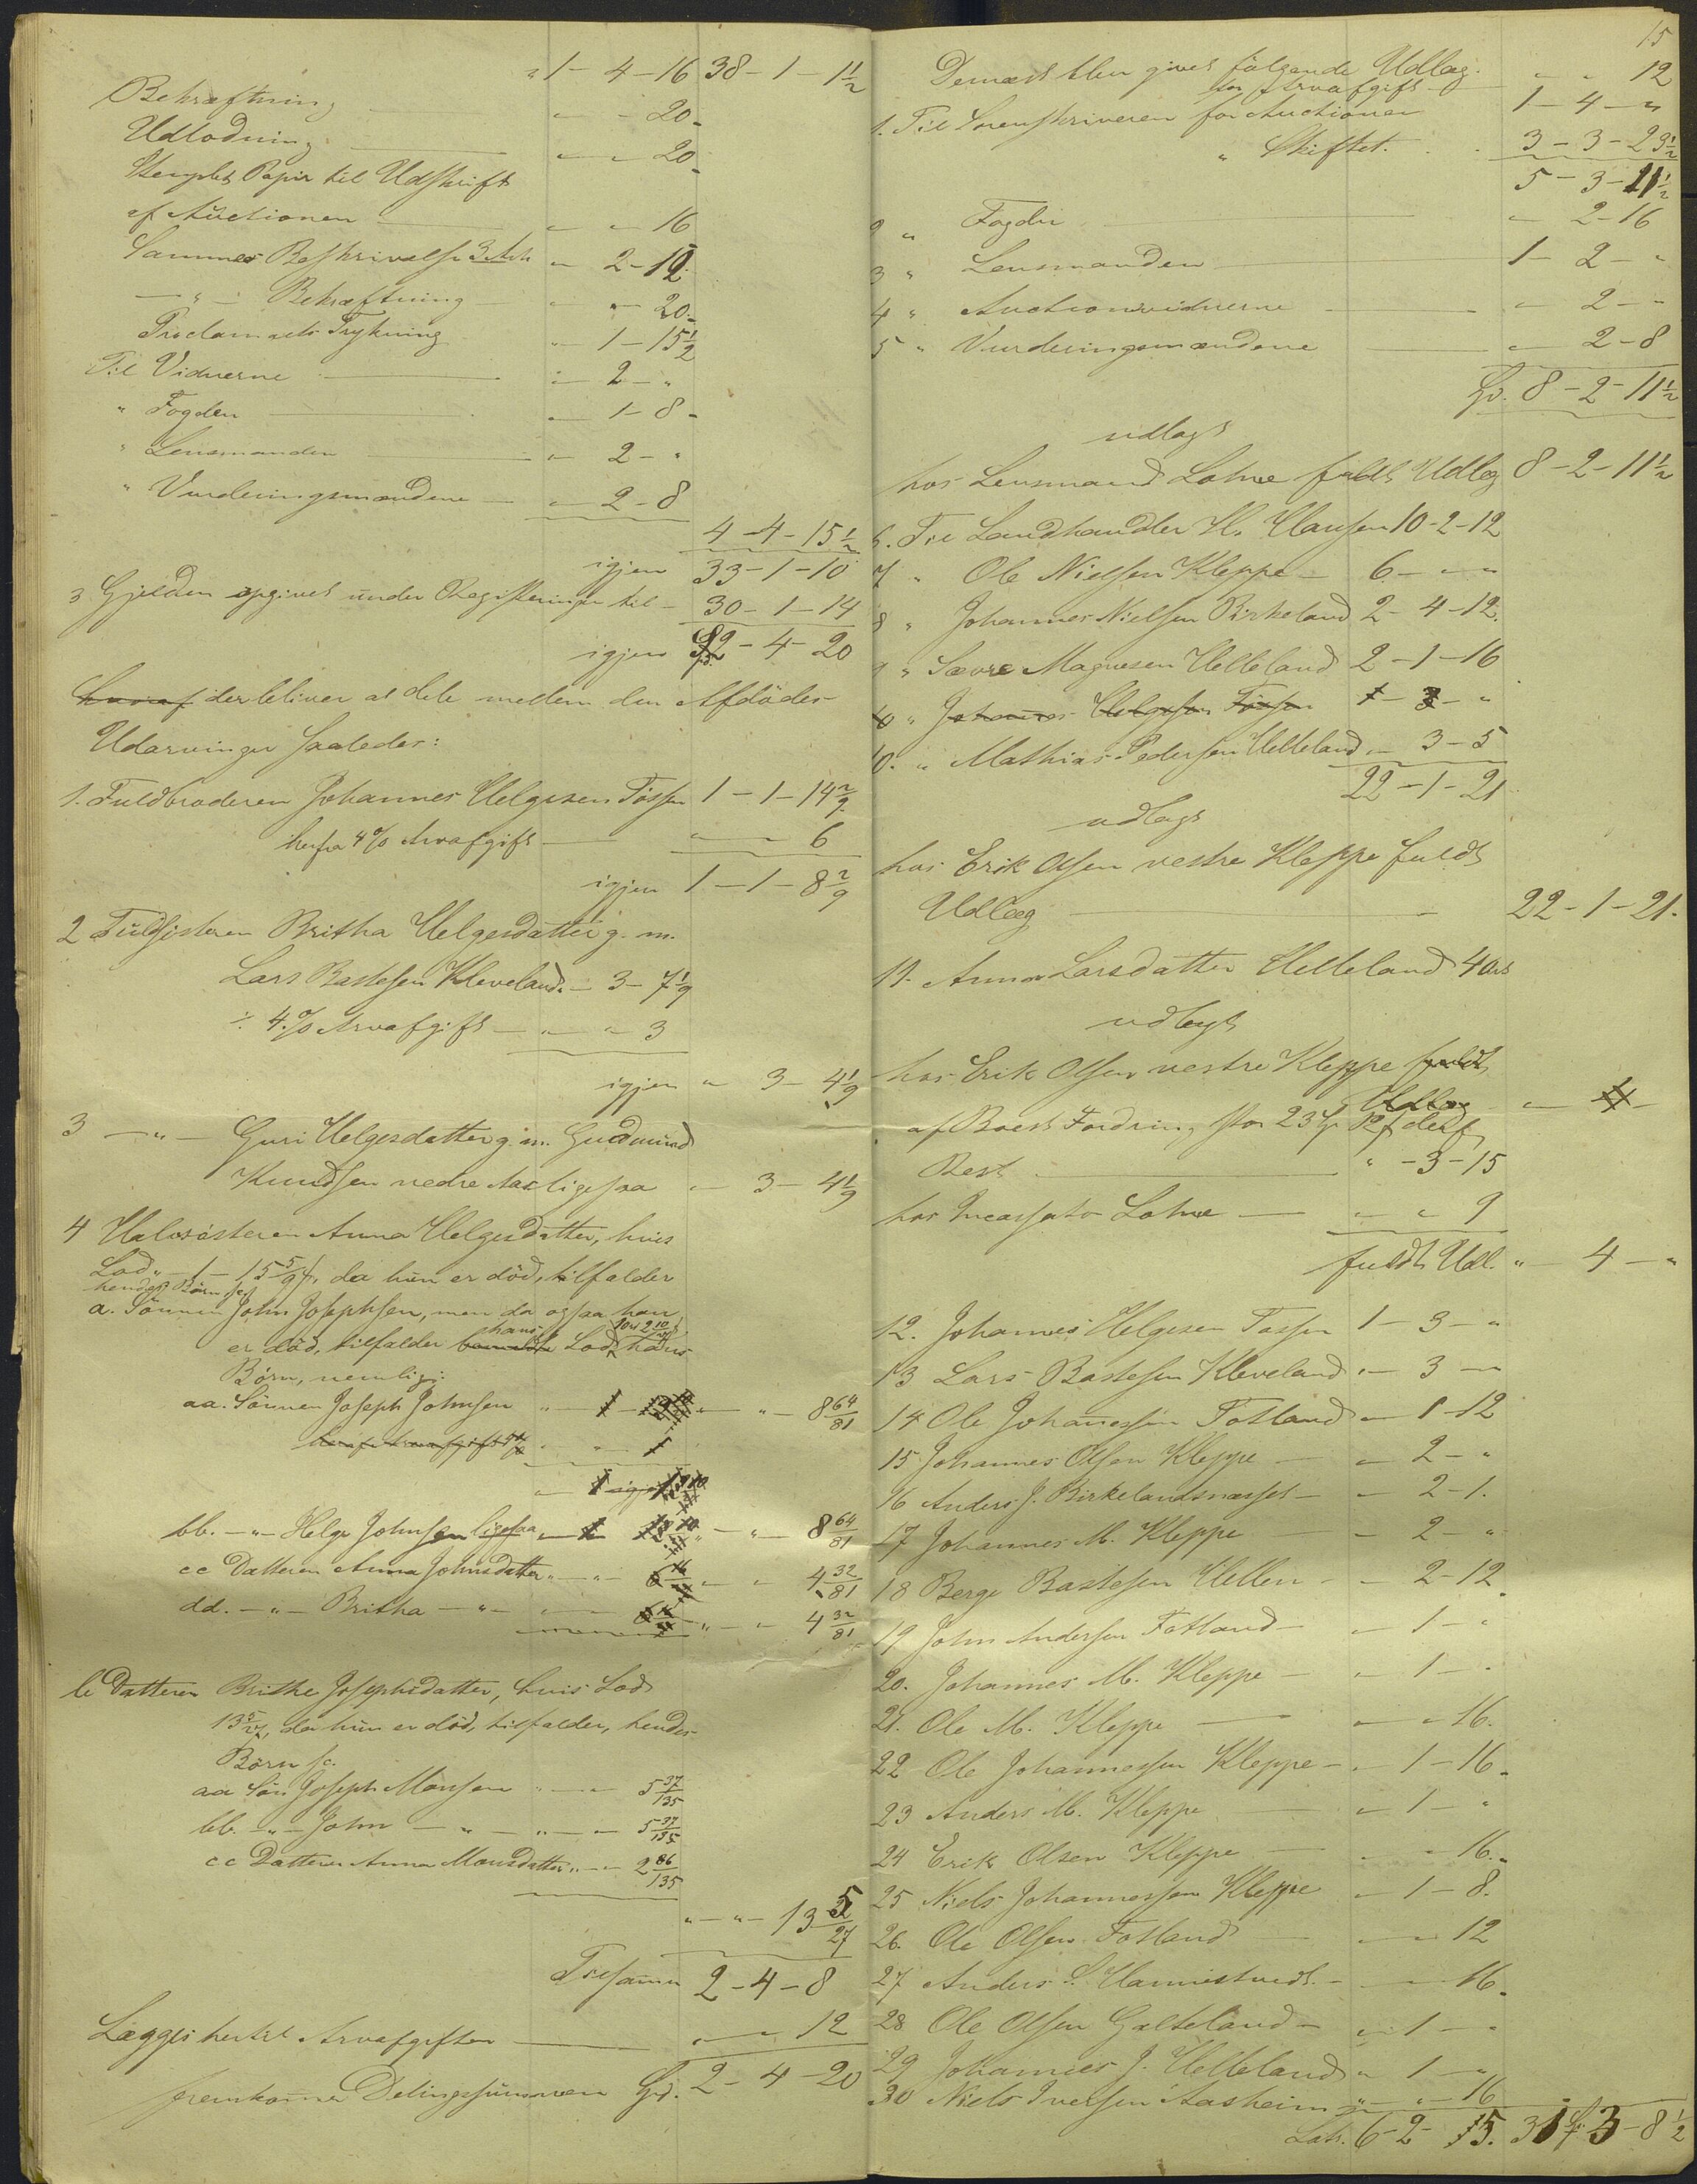 " 1 - 4 - 16 38 - 1 - 1 1/2
Bekræftning " - " - 20
Udlodning " - " - 20
Stemplet Papir til Udskrift
af Auctionen " - " - 16
Sammes Beskrivelse 3 Ark " - 2 - 12
- " - Bekræftning " - " - 20
Proclamaets Trykning " - 1 - 15 1/2
Til Vidnerne " - 2 - "
" Fogden " - 1 - 8
" Lensmanden " - 2 - "
" Vurderingsmændene " - 2 - 8
4 - 4 - 15 1/2
igjen 33 - 1 - 10
3 Gjelden opgivet under Registeringen til 30 - 1 - 14
igjen 2 - 4 - 20
hvoraf der bliver at dele mellem den Afdødes
Udarvinger saaledes:
1. Fuldbroderen Johannes Helgesen Tøssen 1 - 1 - 14 2/9
herfra 4 % Arvafgift " - " - 6
igjen 1 - 1 - 8 2/9
2 Fuldsøsteren Britha Helgesdatter g. m.
Lars Bastesen Kleveland " - 3 - 7 1/9
÷ 4 % Arvafgift " - " - 3
igjen " 3 - 4 1/9
3 - " - Guri Helgesdatter g. m. Gudmund
Knudsen nedre Aas ligesaa " - 3 - 4 1/9
4 Halvsøsteren Anna Helgesdatter, hvis
Lod " - 1 - 15 5/9 , da hun er død, tilfalder
hendes Børn
a. Sønnen John Josephsen, men da ogsaa han
er død, tilfalder hans Lod hans
Børn, nemlig:
aa. Sønnen Joseph Johnsen " - " - 8 64/81
bb. - " - Helge Johnsen ligesaa " - " - 8 64/81
cc Datteren Anna Johnsdatter " - " 4 32/81
dd. - " - Britha - " - " - " 4 32/81
b Datteren Brithe Josephsdatter, hvis Lod
13 5/27, da hun er død, tilfalder, hendes
Børn sc.
aa Søn Joseph Monsen " - " - 5 37/135
bb. - " - John - " - " - " - 5 37/135
cc Datteren Anna Monsdatter " - " 2 86/135
" - " - 13 5/27
Tilsammen 2 - 4 - 8
Lægges hertil Arvafgiften " - " - 12
fremkommer Delingssummen 2 - 4 - 20
15
Dernæst blev givet følgende Udlæg.
for Arvafgift " - " 12
1. Til Sorenskriveren for Auctionen 1 - 4 - "
" Skiftet 3 - 3 - 23 1/2
5 - 3 - 11 1/2
2 " Fogden " 2 - 16
3 " Lensmanden 1 - 2 - "
4 " Auctionsvidnerne " 2 - "
5 " Vurderingsmændene " 2 - 8
8 - 2 - 11 1/2
udlagt
hos Lensmand Lohne fuldt Udlæg 8 - 2 - 11 1/2
6. Til Landhandler H. Clausen 10 - 2 - 12
7 " Ole Nielsen Kleppe 6 - " - "
8 " Johannes Nielsen Birkeland 2 - 4 - 12
9 " Sævre Magnesen Helleland 2 - 1 - 16
10 " Johannes Helgesen Tøssen 1 - 3 - "
10. " Mathias Pedersen Helleland " - 3 - 5
22 - 1 - 21
udlagt
hos Erik Olsen vestre Kleppe fuldt
Udlæg 22 - 1 - 21.
11. Anna Larsdatter Helleland 4 Ort
udlagt
hos Erik Olsen vestre Kleppe fuldt
Udlæg
af Boets Fordring stor 23
Rest " - 3 - 15
hos Incassator Lohne " - " 9
fuldt Udl. " - 4 - "
12. Johannes Helgesen Tøssen 1 - 3 - "
13 Lars Bastesen Kleveland " - 3 - "
14 Ole Johannessen Fotland " - 1 - 12
15 Johannes Olsen Kleppe " 2 - "
16 Anders J. Birkelandsnesset " 2 - 1.
17 Johannes M. Kleppe - 2 - "
18 Berge Bastesen Hellen - 2 - 12
19 John Andersen Fotland " - 1 - "
20. Johannes M. Kleppe " - 1 - "
21. Ole M. Kleppe " - " 16.
22 Ole Johannessen Kleppe " 1 - 16
23 Anders M. Kleppe " - 1 - "
24 Erik Olsen Kleppe " - " 16.
25 Niels Johannessen Kleppe " 1 - 8.
26. Ole Olsen Fotland " - " 12
27 Anders S. " - " 16
28 Ole Olsen Galteland " - 1 - "
29 Johannes J. Helleland " 1 - "
30 Niels Iversen Aasheim " - " 16
Lat. 6 - 2 - 15. 31 - 3 - 8 1/2